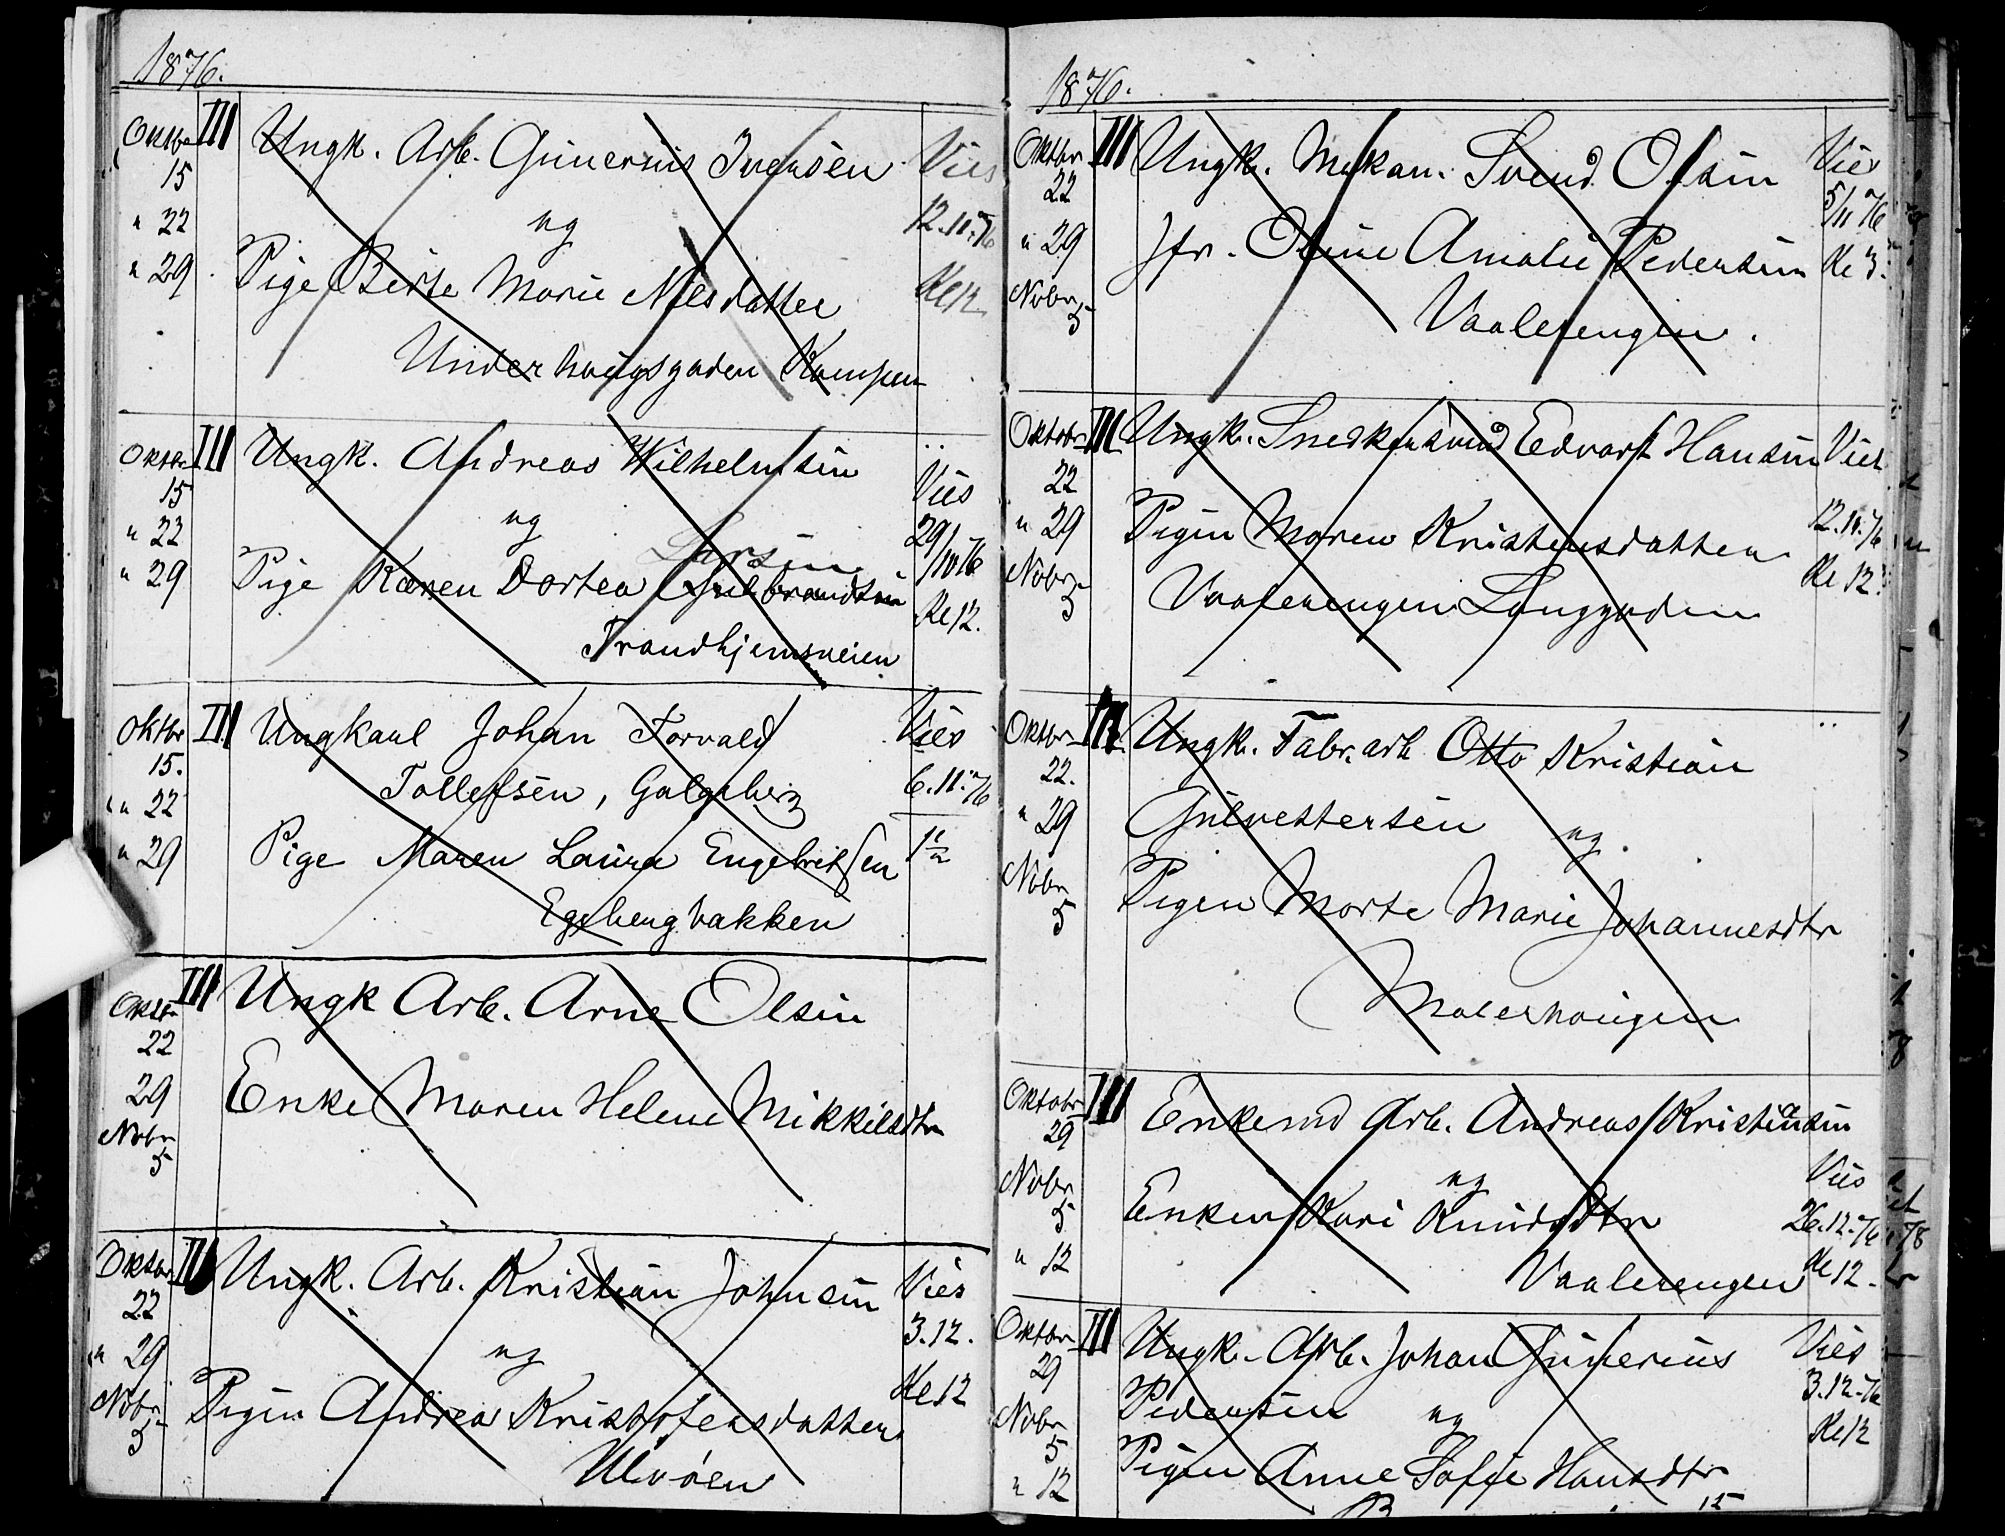 1876.
Oktbr III Ungk. Arb. Gunerius Iversen Vies
15
" 22 og 12.11.76
" 29 Pige Berte Marie Nilsdatter Kl 12
Underhaugsgaden Kampen
Oktbr III Ungk. Andreas Wilhelmsen Vies
15
" 22 og 29/10 76
Larsen
" 29 Pige Karen Dortea Gulbrandsen Kl 12.
Trondhjemsveien
Oktbr III Ungkarl Johan Torvald Vies
15.
" 22 Tollefsen, Galgeberg 6.11.76
" 29 Pige Maren Laura Engebritsen 1½
Egebergbakken
Oktbr III Ungk Arb. Arne Olsen
22
29 Enke Maren Helene Mikkelsdtr
Nobr
5
Oktbr III Ungk. Arb. Kristian Johnsen Vies
22 3.12.
" 29 og Kl 12
Nobr Pigen Andrea Kristofersdatter
5 Ulvøen
1876.
Oktbr III Ungk. Mekan. Svend Olsen Vies
22 5/11 76
" 29 Jfr. Oline Amalie Pedersen Kl 3.
Nobr
5 Vaalerengen.
Oktobr III Ungk. Snedkersvend Edvart Hansen Vies
22
" 29 Pigen Maren Kristensdatter 12.11.76
Nobr Kl 12
5 Vaalerengen Langgaden
Oktbr III Ungk. Fabr. arb Otto Kristian
22.
" 29 Gulvestersen og
Nobr Pigen Marte Marie Johannesdtr
5
Malerhaugen
Oktobr III Enkemd Arb. Andreas Kristiansen
29
Nobr og Vies
5 Enken Kari Knudsdtr 26.12.76
" 12 Vaalerengen Kl 12.
Oktbr III Ungk. Arb. Johan Gunerius Vies
29 Pedersen 3.12.76
Nobr og Kl 12
5 Pigen Anne Sofie Hansdtr
" 12 15